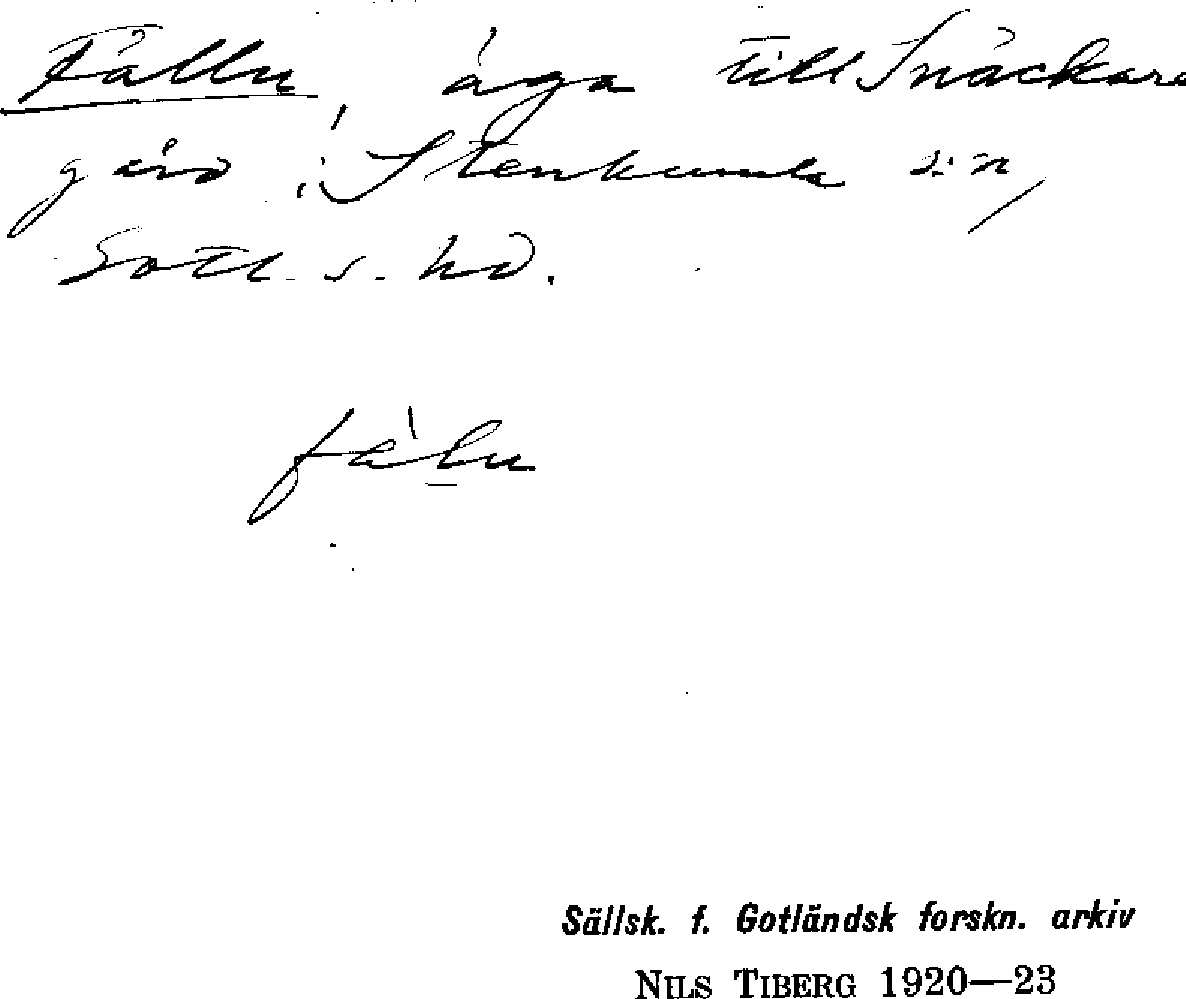 Fållu, åga till Snäckare
gård i Stenkumla s:n,
Gotl. s. hd.
fålu
Sällsk. f. Gotländsk forskn. arkiv
NILS TIBERG 1920—23